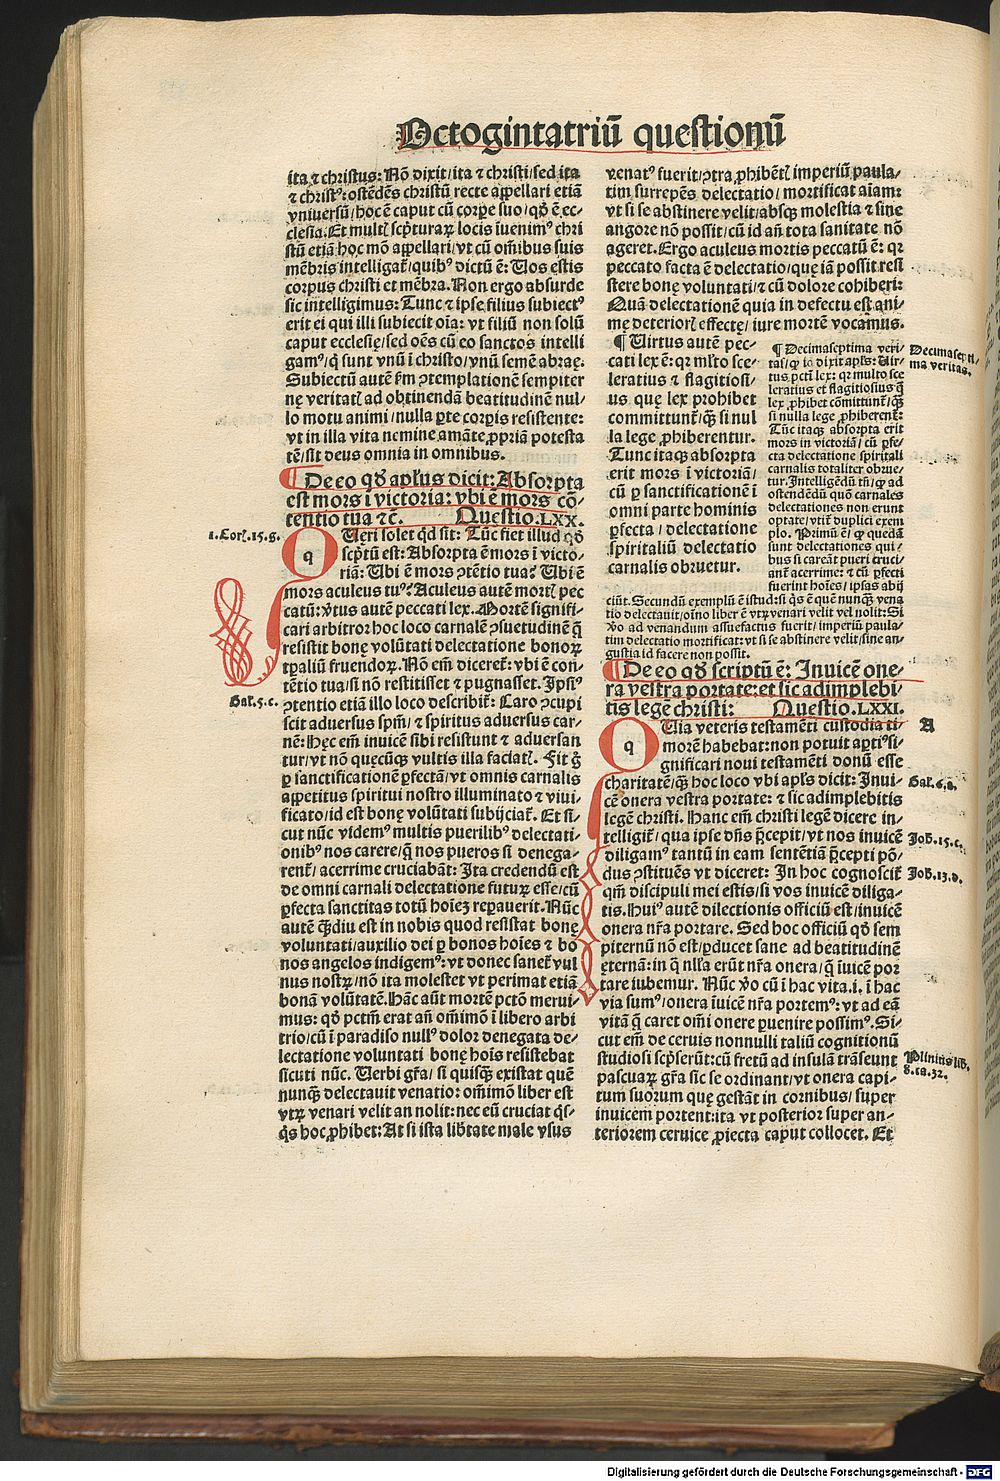 Octogintatriū questionū
ita ⁊ christus: Nō dixit/ita ⁊ christi/sed ita
⁊ christꝰ: ostēdēs christū recte appellari etiā
vniversū/hoc ē caput cū corpe suo/qd̄ ē ec-
clesia. Et multꝭ scpturaꝝ locis īuenimꝰ chri
stū etiā hoc mō appellari/vt cū om̄ibus suis
mēbris intelligat̄/quibꝰ dictū ē: Uos estis
corpus christi et mēbra. Non ergo absurde
sic intelligimus: Tunc ⁊ ipse filius subiectꝰ
erit ei qui illi subiecit oīa: vt filiū non solū
caput ecclesię/sed oēs cū eo sanctos intelli
gamꝰ/q̄ sunt vnū ī christo/vnū semē abraę.
Subiectū autē fm ꝯtemplationē sempiter
nę veritatꝭ ad obtinendā beatitudinē nul-
lo motu animi/nulla pte corpis resistente:
vt in illa vita nemine amāte ꝓpriā potesta
tē/sit deus omnia in omnibus.
¶ De eo qd̄ apl̄us dicit: Absorpta
est mors ī victoria: vbi ē mors cō-
tentio tua ⁊c̄. Questio.LXX.
1.Corꝭ.15.g.
q Ueri solet qd̄ sit: Tūc fiet illud qd̄
scptū est: Absorpta ē mors ī victo-
riā: Ubi ē mors ꝯtētio tua? Ubi ē
mors aculeus tuꝰ: Aculeus autē mortꝭ pec
catū: vtus autē peccati lex. Mortē signifi-
cari arbitror hoc loco carnalē ꝯsuetudinē q̄
resistit bonę volūtati delectatione bonoꝝ
tpaliū fruendoꝝ. Nō em̄ diceret̄: vbi ē con-
tētio tua/si nō restitisset ⁊ pugnasset. Ipsiꝰ
Gal.5.c.
ꝯtentio etiā illo loco describit̄: Caro ꝯcupi
scit adversus spm̄/⁊ spiritus adversus car-
nē: Hęc em̄ inuicē sibi resistunt ⁊ adversan
tur/vt nō quęcūqꝫ vultis illa faciatꝭ. Fit g̊
ꝑ sanctificationē pfectā/vt omnis carnalis
appetitus spiritui nostro illuminato ⁊ viui-
ficato/id est bonę volūtati subijciat̄. Et si-
cut nūc videmꝰ multis puerilibꝰ delectati-
onibꝰ nos carere/q̄ nos pueros si denega-
rent̄/acerrime cruciabāt: Ita credendū est
de omni carnali delectatione futuꝝ esse/cū
pfecta sanctitas totū hoīeꝫ repauerit. Nūc
autē qdiu est in nobis quod resistat bonę
voluntati/auxilio dei ꝑ bonos hoīes ⁊ bo
nos angelos indigemꝰ: vt donec sanet̄ vul
nus nostꝝ/nō ita molestet vt perimat etiā
bonā volūtatē. Hāc aūt mortē pctō merui-
mus: qd̄ pctm̄ erat an̄ om̄imō ī libero arbi
trio/cū ī paradiso nullꝰ dolor denegata de-
lectatione voluntati bonę hoīs resistebat
sicuti nūc. Uerbi gr̄a/si quisqꝫ existat quē
nunqꝫ delectauit venatio: om̄imō liber est
vtꝝ venari velit an nolit: nec eū cruciat qs-
qs hoc ꝓhibet: At si ista libtate male vsus
venatꝰ fuerit/ꝯtra ꝓhibētꝭ imperiū paula-
tim surrepēs delectatio/mortificat aīam:
vt si se abstinere velit/absqꝫ molestia ⁊ sine
angore nō possit/cū id an̄ tota sanitate nō
ageret. Ergo aculeus mortis peccatū ē: qꝛ
peccato facta ē delectatio/quę iā possit resi
stere bonę voluntati/⁊ cū dolore cohiberi:
Quā delectationē quia in defectu est ani-
mę deteriorꝭ effectę/iure mortē vocamus.
¶ Uirtus autē pec-
cati lex ē: qꝛ ml̄to sce-
leratius ⁊ flagitiosi-
us quę lex prohibet
committunt̄/qꝫ si nul
la lege ꝓhiberentur.
Tunc itaqꝫ absorpta
erit mors ī victoriā/
cū ꝑ sanctificationē ī
omni parte hominis
pfecta/delectatione
spiritaliū delectatio
carnalis obruetur.
¶ Decimaseptima veri-
tas/ꝙ id dixit apl̄s: Uir-
tus pcti lex: qꝛ multo sce
leratius et flagitiosius q̄
lex ꝓhibet cōmittunt̄/qꝫ
si nulla lege ꝓhiberent̄:
Tūc itaqꝫ absorpta erit
mors in victoriā/cū pfe-
cta delectatione spiritali
carnalis totaliter obrue-
tur. Intelligēdū tn̄/ꝙ ad
ostendēdū quō carnales
delectationes non erunt
optate/vtit̄ duplici exem
plo. Primū ē/ꝙ quedā
sunt delectationes qui-
bus si careāt pueri cruci-
ant̄ acerrime: ⁊ cū pfecti
fuerint hoīes/ipsas abij
ciūt. Secundū exemplū ē istud: si qs ē quē nunqꝫ vena
tio delectauit/oīno liber ē vtꝝ venari velit vel nolit: Si
v̊o ad venandum assuefactus fuerit/imperiū paula-
tim delectatio mortificat: vt si se abstinere velit/sine an-
gustia id facere non possit.
Decimasepti-
ma veritas.
¶ De eo qd̄ scriptū ē: Inuicē one-
ra vestra portate: et sic adimplebi-
tis legē christi: Questio.LXXI.
A
q Uia veteris testamēti custodia ti-
morē habebat: non potuit aptiꝰ si-
gnificari noui testamēti donū esse
charitatē/qꝫ hoc loco vbi apl̄s dicit: Inui-
Gal.6.a.
cē onera vestra portate: ⁊ sic adimplebitis
legē christi. Hanc em̄ christi legē dicere in-
telligit̄/qua ipse dn̄s pcepit/vt nos inuicē
Joh.15.c.
diligamꝰ tantū in eam sententiā pcepti pō-
dus ꝯstituēs vt diceret: In hoc cognoscit̄
Joh.13.d.
qm̄ discipuli mei estis/si vos inuicē diliga-
tis. Huiꝰ autē dilectionis officiū est/inuicē
onera nr̄a portare. Sed hoc officiū qd̄ sem
piternū nō est/pducet sane ad beatitudinē
ęternā: in q̄ nl̄la erūt nr̄a onera/q̄ īuicē por
tare iubemur. Nūc v̊o cū ī hac vita.i. ī hac
via sumꝰ/onera īuicē nr̄a portemꝰ: vt ad eā
vitā q̄ caret om̄i onere puenire possimꝰ. Si-
cut em̄ de ceruis nonnulli taliū cognitionū
studiosi scpserūt: cū fretū ad insulā trāseunt
Plinius lib.
8.ca.32.
pascuaꝝ gr̄a sic se ordinant/vt onera capi-
tum suorum quę gestāt in cornibus/super
inuicem portent: ita vt posterior super an-
teriorem ceruice ꝓiecta caput collocet. Et
Digitalisierung gefördert durch die Deutsche Forschungsgemeinschaft - DFG